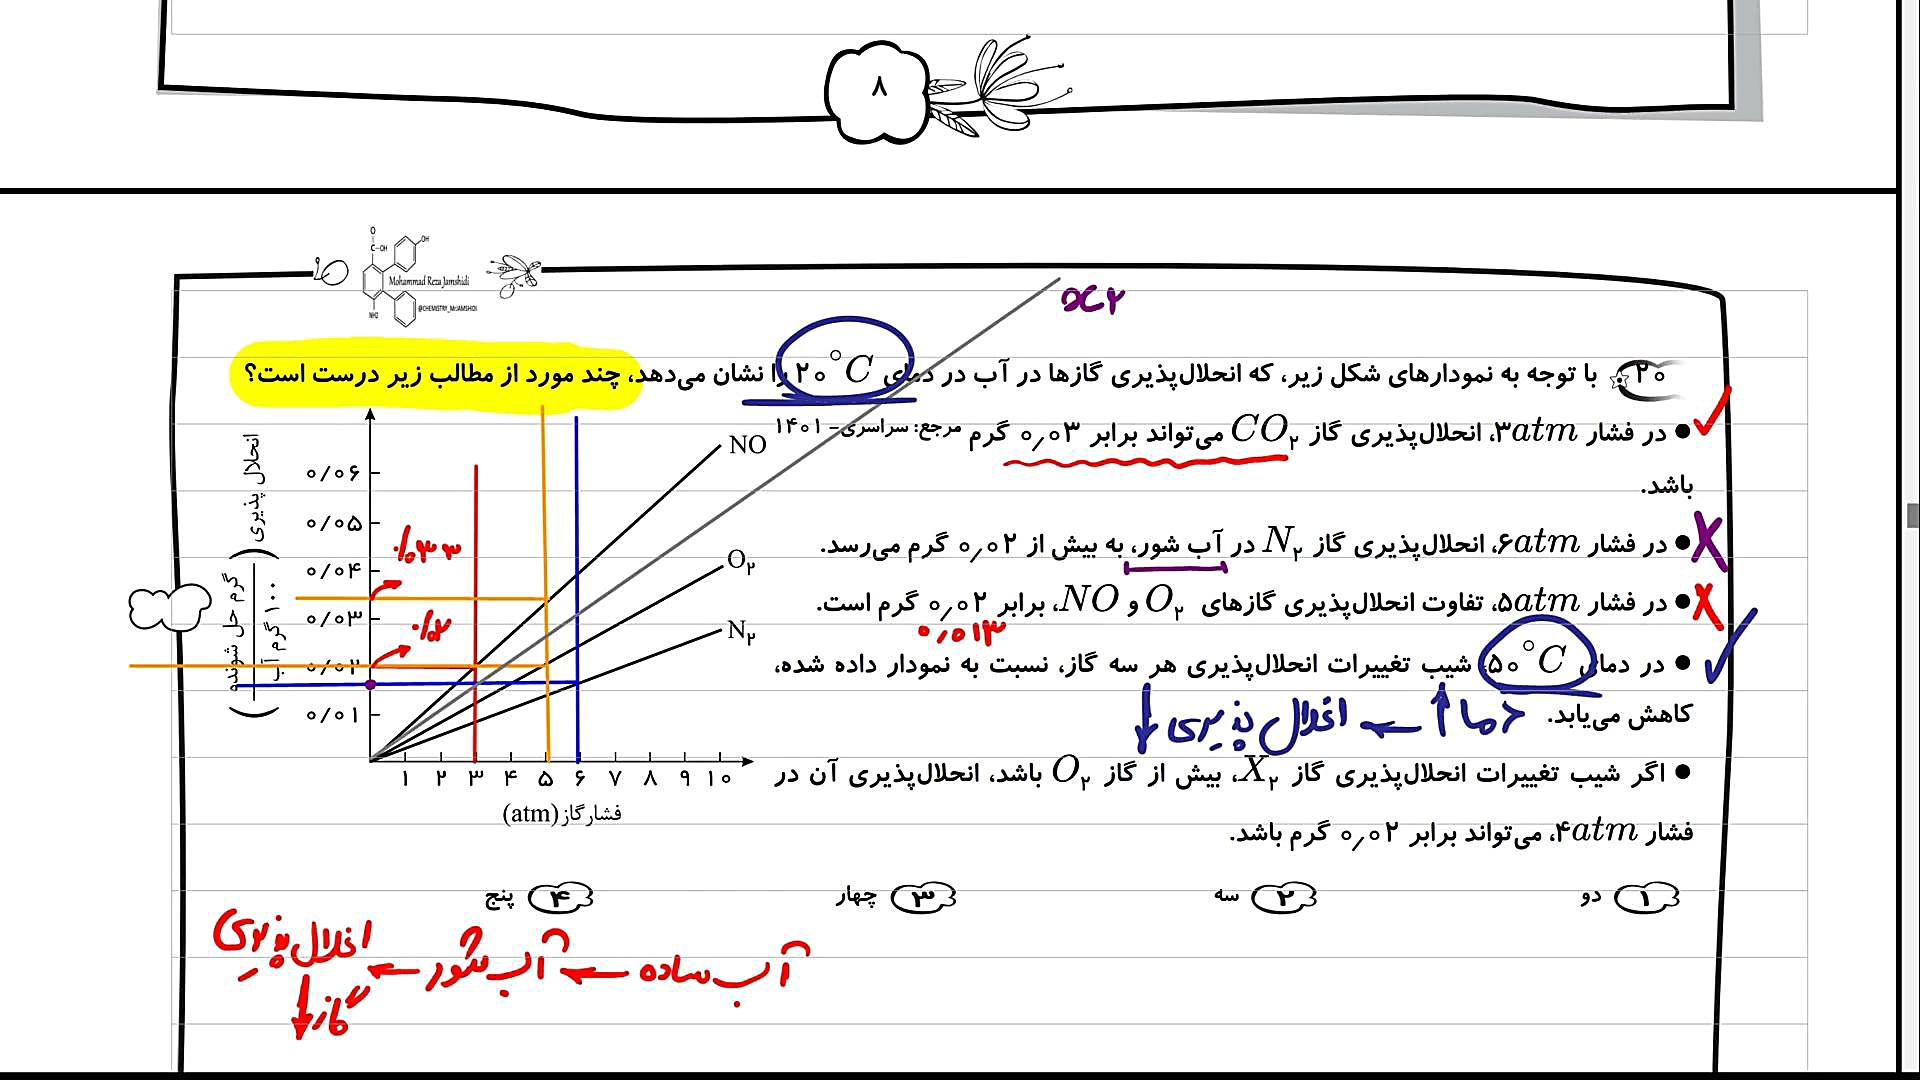 ۸
O
C-OH
OH
Mohammad Reza Jamshidi
@CHEMISTRY_MRJAMSHIDI
NH2
۲۰ با توجه به نمودارهای شکل زیر، که انحلال‌پذیری گازها در آب در دمای ۲۰°C را نشان می‌دهد، چند مورد از مطالب زیر درست است؟
● در فشار ۳atm، انحلال‌پذیری گاز CO۲ می‌تواند برابر ۰٫۰۳ گرم مرجع: سراسری- ۱۴۰۱
باشد.
● در فشار ۶atm، انحلال‌پذیری گاز N۲ در آب شور، به بیش از ۰٫۰۲ گرم می‌رسد.
● در فشار ۵atm، تفاوت انحلال‌پذیری گازهای O۲ و NO، برابر ۰٫۰۲ گرم است.
۰٫۰۱۳
● در دمای ۵۰°C، شیب تغییرات انحلال‌پذیری هر سه گاز، نسبت به نمودار داده شده،
کاهش می‌یابد.
دما ↑ ← انحلال پذیری ↓
● اگر شیب تغییرات انحلال‌پذیری گاز X۲، بیش از گاز O۲ باشد، انحلال‌پذیری آن در
فشار ۴atm، می‌تواند برابر ۰٫۰۲ گرم باشد.
انحلال پذیری (گرم حل شونده / ۱۰۰ گرم آب)
۰/۰۶
۰/۰۵
۰/۰۴
۰/۰۳
۰/۰۲
۰/۰۱
NO
O۲
N۲
۱ ۲ ۳ ۴ ۵ ۶ ۷ ۸ ۹ ۱۰
فشار گاز (atm)
۱ دو ۲ سه ۳ چهار ۴ پنج
آب ساده ← آب شور ← انحلال پذیری
گاز ↓